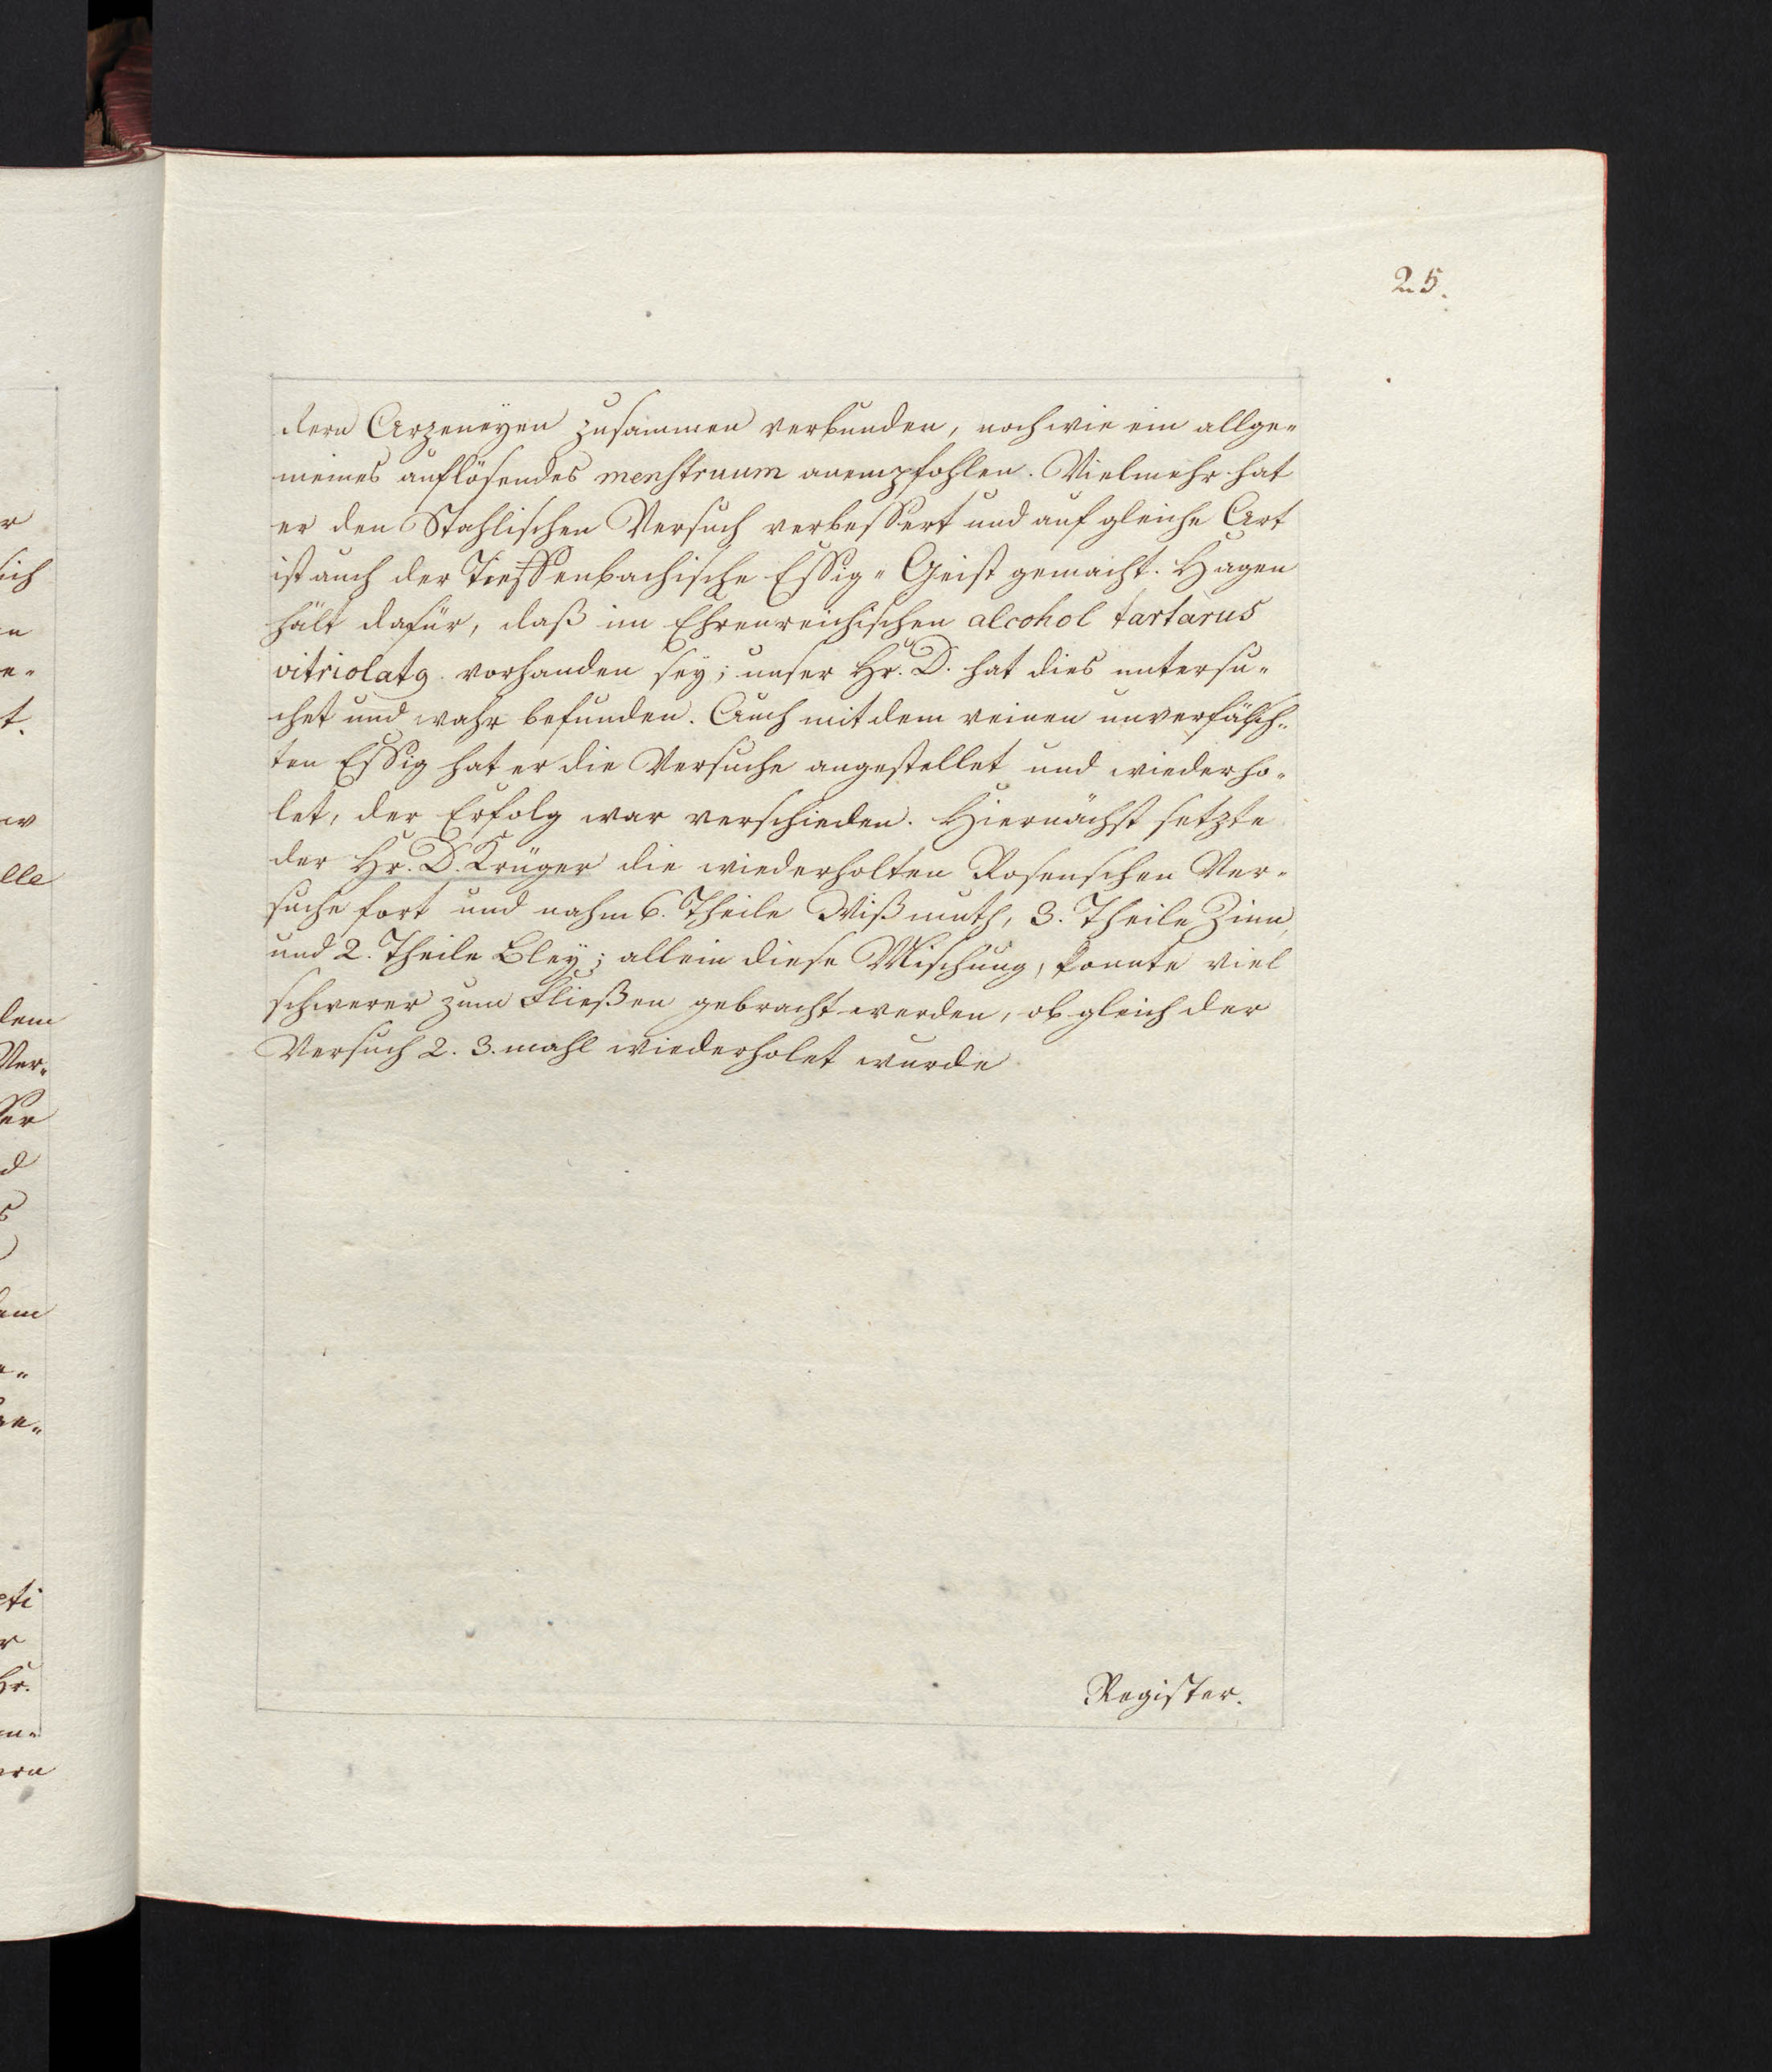 25.
dern Arzeneyen zusammen verbunden, noch wie ein allge-
meines auflösendes menstruum anempfohlen. Vielmehr hat
er den Stahlischen Versuch verbessert und auf gleiche Art
ist auch der Essig-Geist gemacht. Hagen
hält dafür, daß im Ehrenreichischen alcohol tartarus
vitriolatq. vorhanden sey; unser Hr. D. hat dies untersu-
chet und wahr befunden. Auch mit dem reinen unverfälsch-
ten Essig hat er die Versuche angestellet und wiederho-
let, der Erfolg war verschieden. Hiernächst setzte
der Hr. D. Krüger die wiederholten Rosenschen Ver-
suche fort und nahm 6. Theile Wißmuth, 3. Theile Zinn,
und 2. Theile Bley; allein diese Mischung, konnte viel
schwerer zum Fließen gebracht werden, obgleich der
Versuch 2. 3. mahl wiederholet wurde
Register.